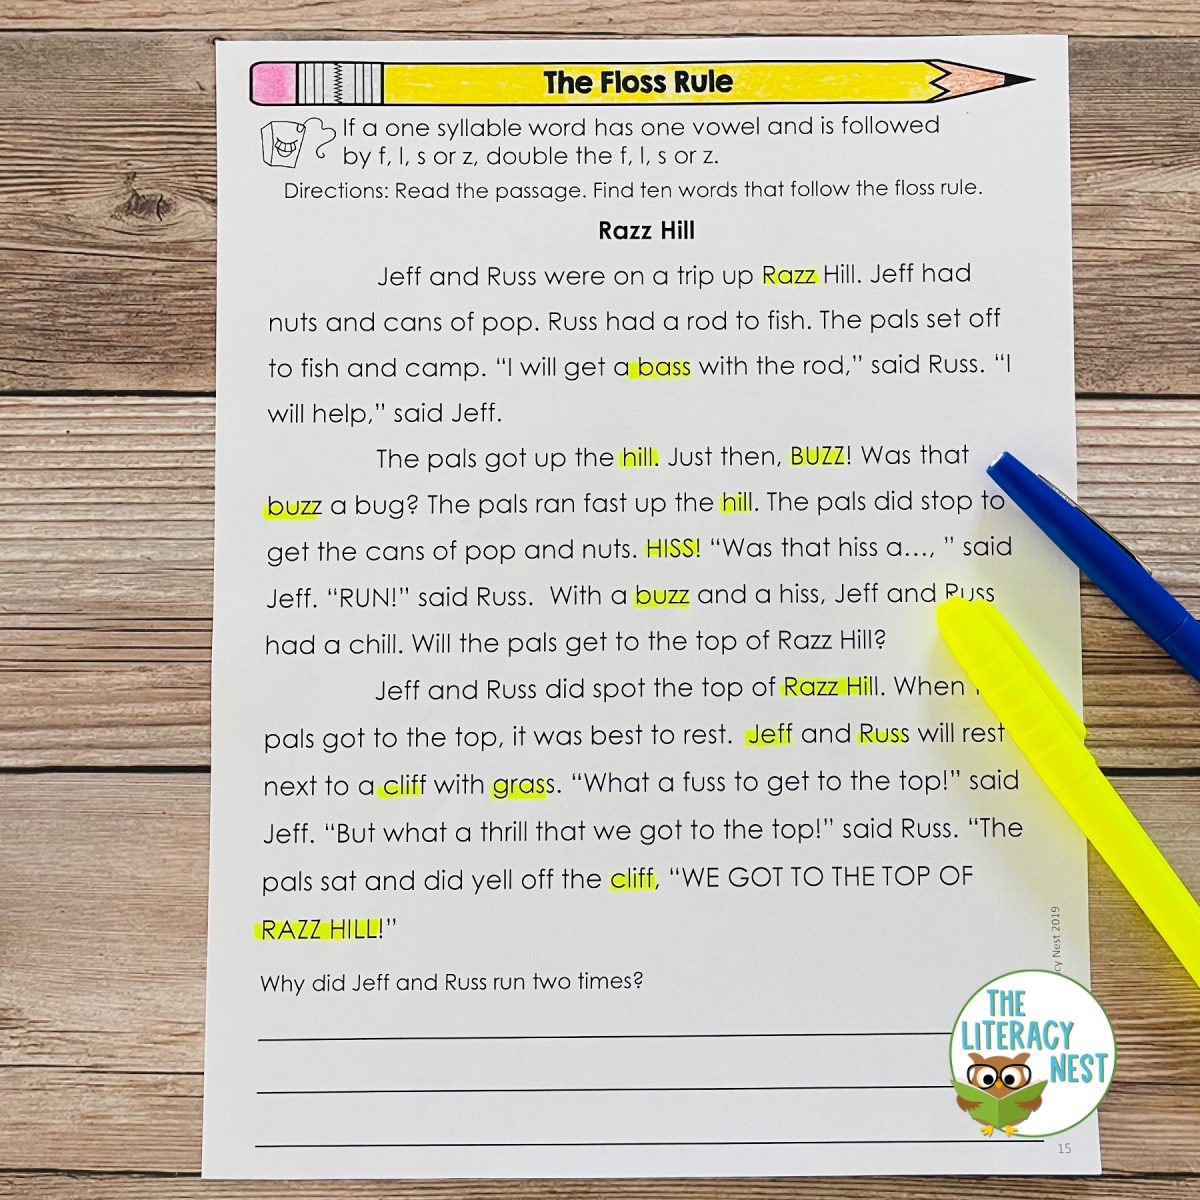 The Floss Rule
If a one syllable word has one vowel and is followed
by f, l, s or z, double the f, l, s or z.
Directions: Read the passage. Find ten words that follow the floss rule.
Razz Hill
Jeff and Russ were on a trip up Razz Hill. Jeff had
nuts and cans of pop. Russ had a rod to fish. The pals set off
to fish and camp. “I will get a bass with the rod,” said Russ. “I
will help,” said Jeff.
The pals got up the hill. Just then, BUZZ! Was that
buzz a bug? The pals ran fast up the hill. The pals did stop to
get the cans of pop and nuts. HISS! “Was that hiss a…, ” said
Jeff. “RUN!” said Russ.  With a buzz and a hiss, Jeff and Russ
had a chill. Will the pals get to the top of Razz Hill?
Jeff and Russ did spot the top of Razz Hill. When
pals got to the top, it was best to rest.  Jeff and Russ will rest
next to a cliff with grass. “What a fuss to get to the top!” said
Jeff. “But what a thrill that we got to the top!” said Russ. “The
pals sat and did yell off the cliff, “WE GOT TO THE TOP OF
RAZZ HILL!”
Why did Jeff and Russ run two times?
Nest 2019
THE
LITERACY
NEST
15